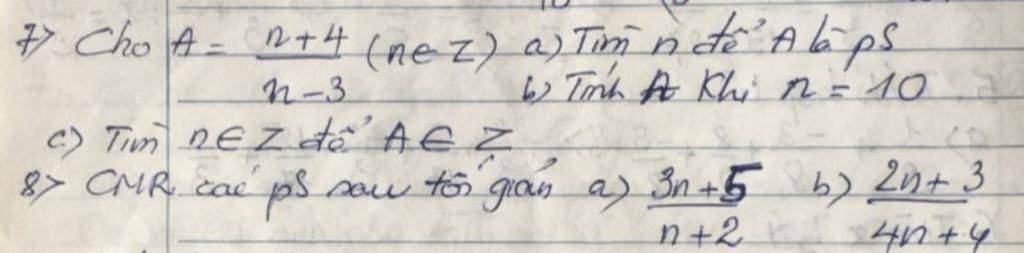 7> Cho A = (n+4)/(n-3) (n∈Z) a) Tìm n để A là pS
b) Tính A Khi n = 10
c) Tìm n∈Z để A∈Z
8> CMR các pS sau tối giản a) (3n+5)/(n+2) b) (2n+3)/(4n+4)